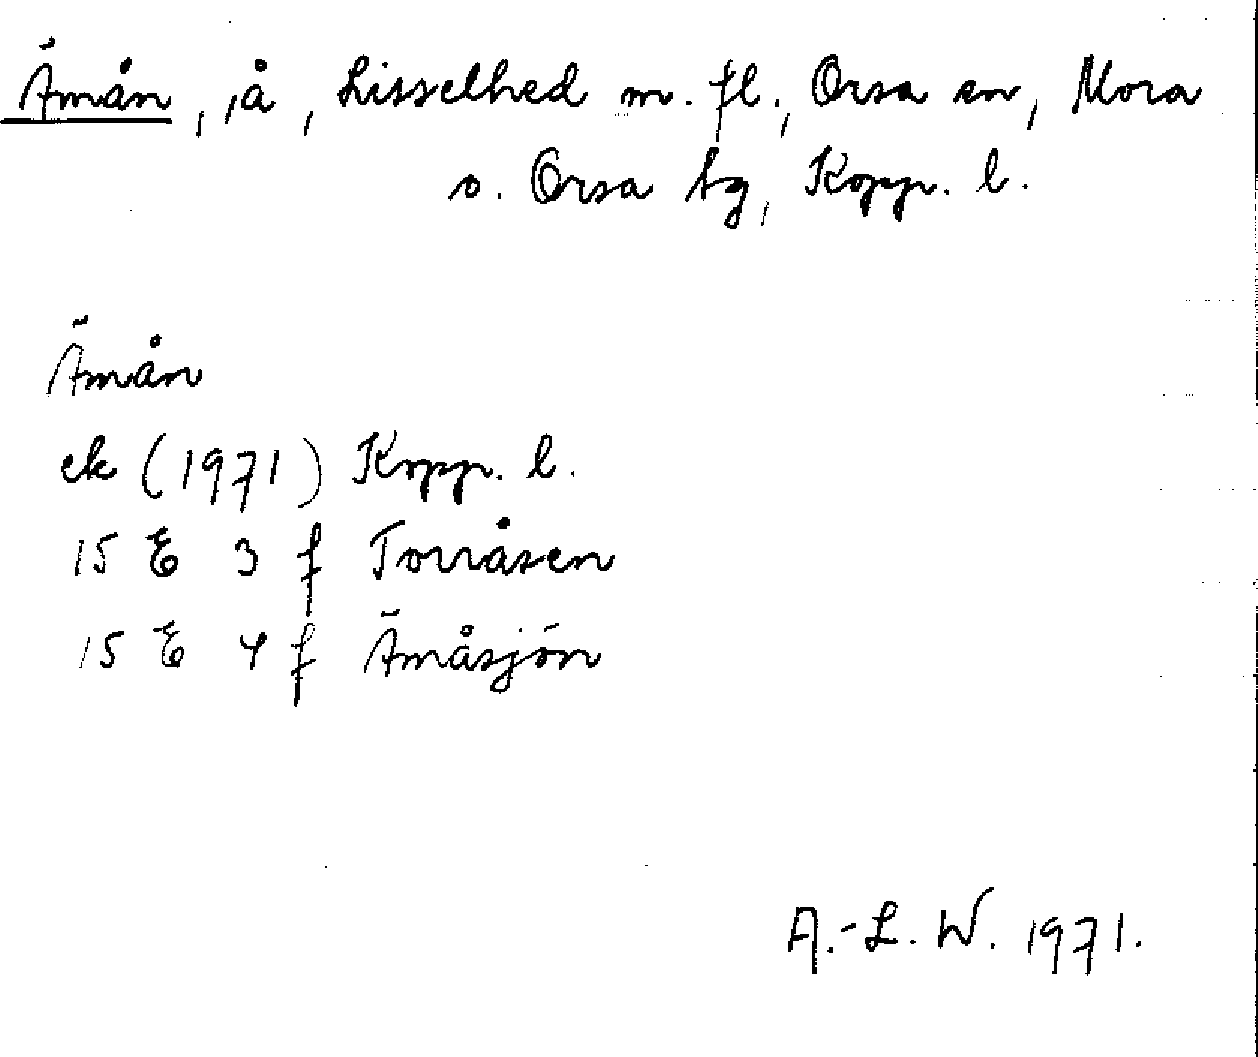 Ämån, å, Lisselhed m. fl., Orsa sn, Mora
o. Orsa tg, Kopp. l.
Ämån
ek (1971) Kopp. l.
15 E 3 f Torråsen
15 E 4 f Ämåsjön
A.-L. W. 1971.